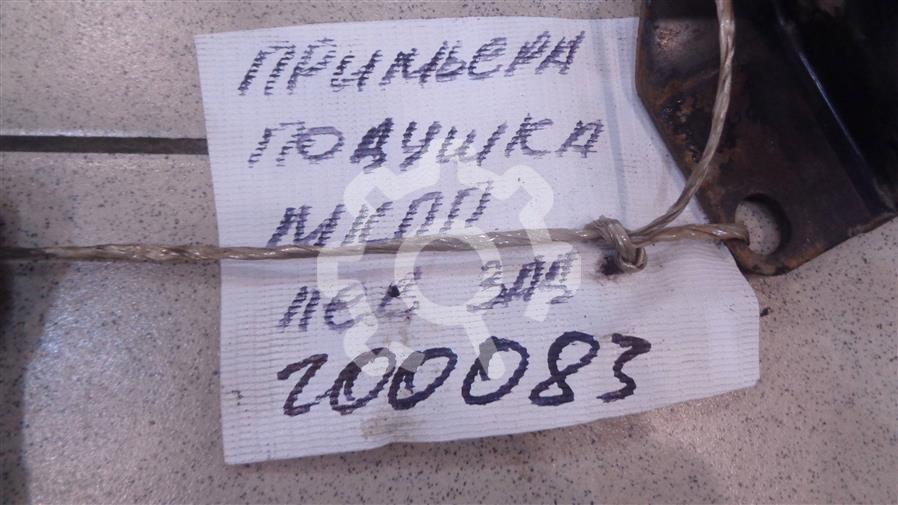 ПРИМЬЕРА
ПОДУШКА
МКПП
ЛЕВ ЗАД
200083